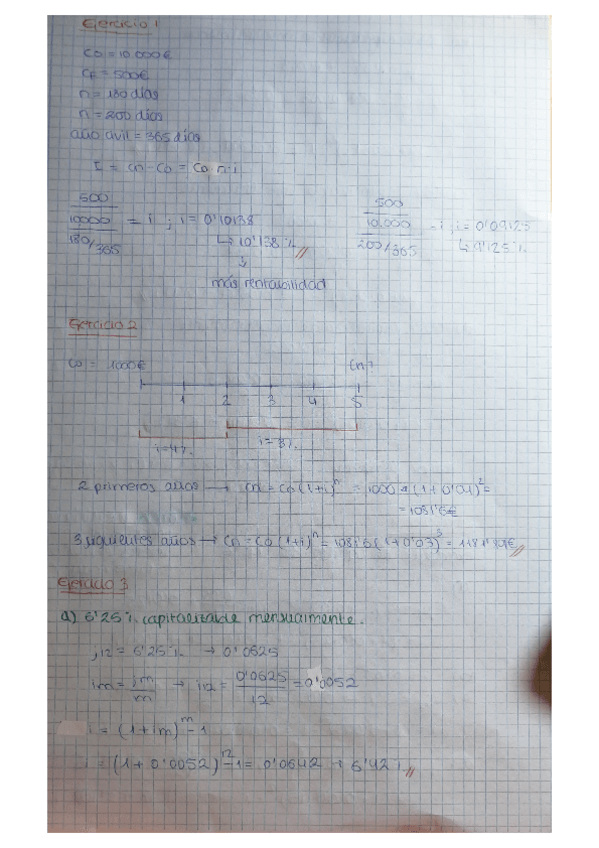 Ejercicio 1
C0 = 10.000€
CF = 500€
n = 180 días
n = 200 días
año civil = 365 días
I = Cn - C0 = C0·n·i
500
10000 = i ; i = 0'10138
180/365 ↳ 10'138%
más rentabilidad
500
10.000 = i ; i = 0'09125
200/365 ↳ 9'125%
Ejercicio 2
C0 = 1000€ Cn?
1 2 3 4 5
i=4% i=3%
2 primeros años → Cn = C0 (1+i)^n = 1000 (1+0'04)^2 =
= 1081'6€
3 siguientes años → Cn = C0 (1+i)^n = 1081'6 (1+0'03)^3 = €
Ejercicio 3
a) 6'25% capitalizable mensualmente.
j12 = 6'25% → 0'0625
im = jm/m → i12 = 0'0625/12 = 0'0052
i = (1+im)^m - 1
i = (1+0'0052)^12 - 1 = 0'0642 → 6'42%